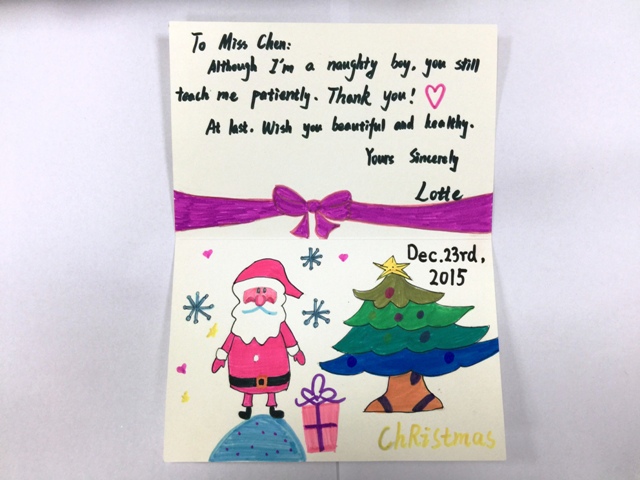 To Miss Chen:
Although I'm a naughty boy. you still
teach me patiently. Thank you!
At last. Wish you beautiful and healthy.
Yours Sincerely
Lotte
Dec.23rd,
2015
ChRistmas